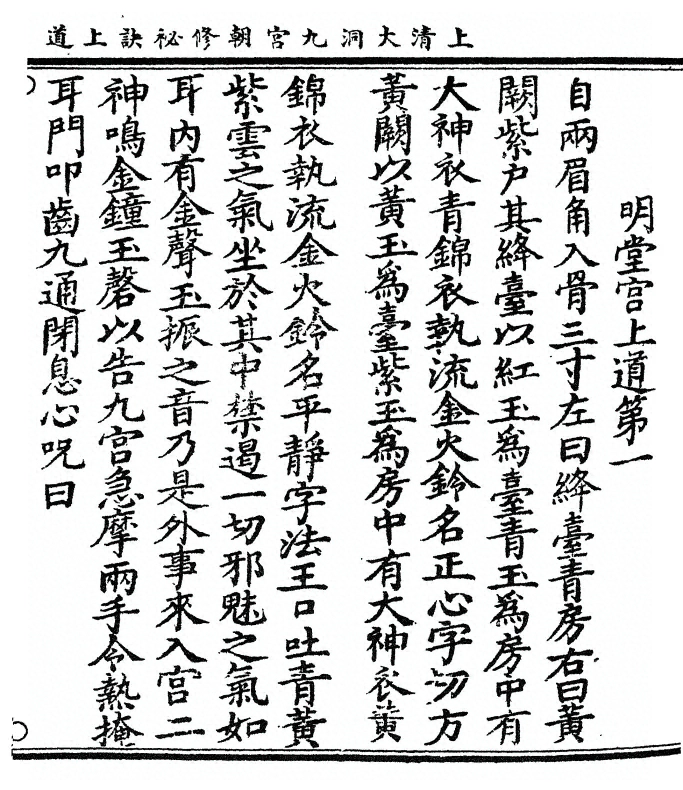 上清大洞九宮朝修祕訣上道
明堂宮上道第一
自兩眉角入骨三寸左曰絳臺青房右曰黃
闕紫户其絳臺以紅玉爲臺青玉爲房中有
大神衣青錦衣執流金火鈴名正心字切方
黃闕以黃玉爲臺紫玉爲房中有大神衣黃
錦衣執流金火鈴名平靜字法王口吐青黃
紫雲之氣坐於其中禁遏一切邪魅之氣如
耳內有金聲玉振之音乃是外事來入宮二
神鳴金鐘玉磬以告九宮急摩兩手令熱掩
耳門叩齒九通閉息心呪曰